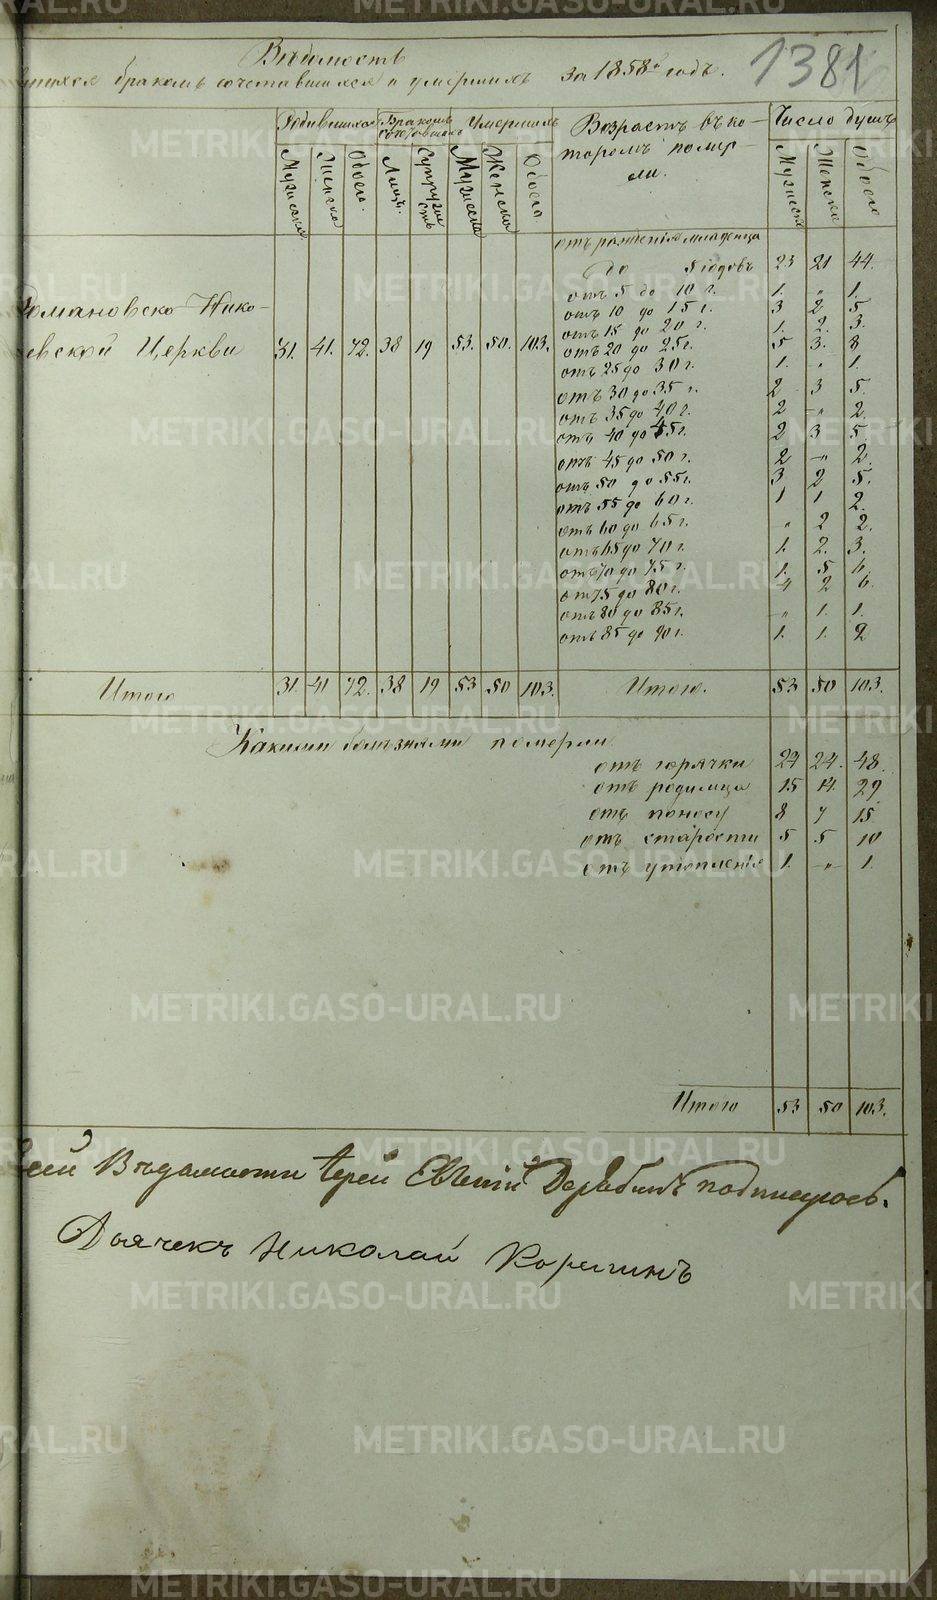 Вѣдомость
браком сочетавшихся и умершихъ за 1858й годъ. 1381
Родившихся Бракомъ сочетавших Умершихъ Возрастъ въ ко- Число душъ
торомъ помер-
ли.
Мужеска Женска Обоего. Лицъ. Супружествъ Мужеска Женска Обоего Мужеска Женска Обоего
отъ рожденія младенца
до 5 годовъ 23 21 44.
отъ 5 до 10 г. 1. " 1.
отъ 10 до 15 г. 3 2 5
отъ 15 до 20 г. 1. 2. 3.
отъ 20 до 25 г. 5 3. 8
отъ 25 до 30 г. 1. " 1.
отъ 30 до 35 г. 2 3 5.
отъ 35 до 40 г. 2 " 2.
отъ 40 до 45 г. 2 3 5.
отъ 45 до 50 г. 2 " 2.
отъ 50 до 55 г. 3 2 5.
отъ 55 до 60 г. 1 1 2.
отъ 60 до 65 г. " 2 2.
отъ 65 до 70 г. 1. 2. 3.
отъ 70 до 75 г. 1. 5 6.
отъ 75 до 80 г. 4 2 6.
отъ 80 до 85 г. " 1. 1.
отъ 85 до 90 г. 1. 1. 2
Романовско-Нико-
евской Церкви 31. 41. 72. 38 19 53. 50. 103.
Итого 31. 41 72. 38 19 53 50 103. Итого. 53 50 103.
Какими болѣзнями померли
отъ горячки 24 24. 48.
отъ родимца 15 14. 29
отъ поносу 8 7 15
отъ старости 5 5 10
отъ утопленія 1. " 1.
Итого 53 50 103.
сей Вѣдомости Іерей Евгеній Дерябинъ подписуюсь.
Дьячекъ Николай Корелинъ
METRIKI.GASO-URAL.RU